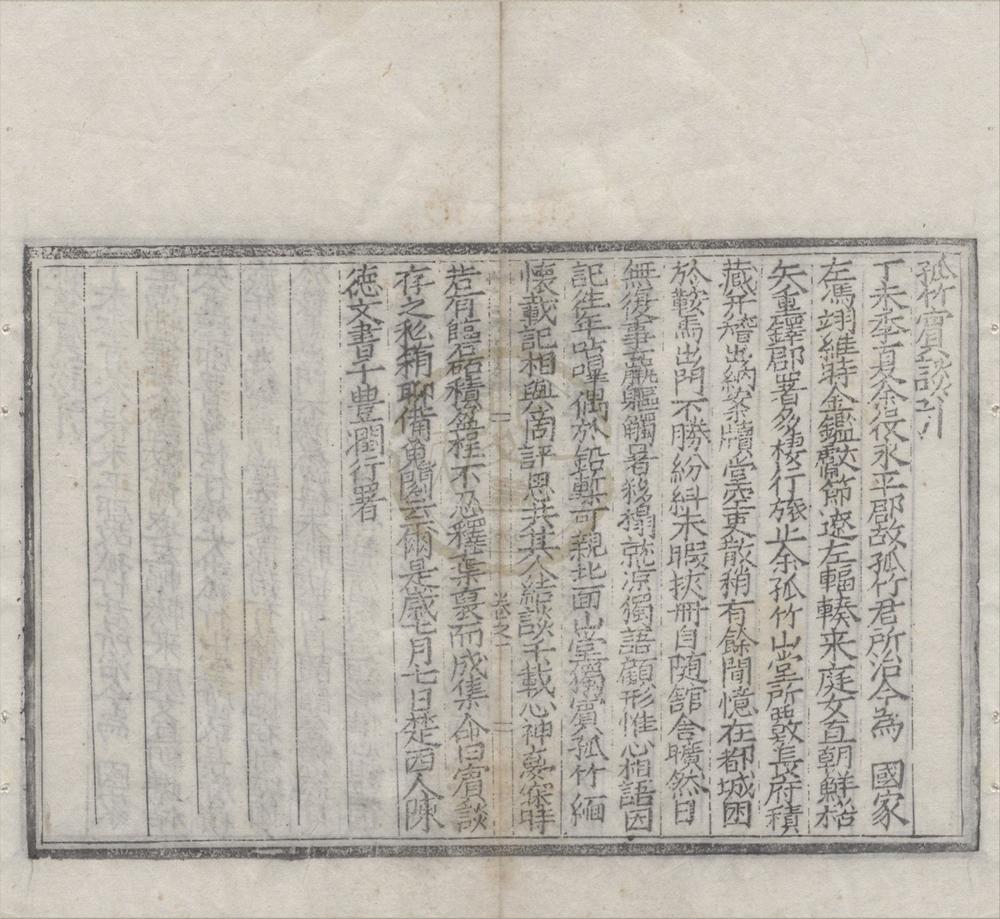 孤竹賓談引
丁未季夏余役永平郡故孤竹君所治今為　國家
左馮翊維時金鑑敵節遼左輻輳来庭女直朝鮮楛
矢重鐸郡署多棲行旅止余孤竹山堂所要長府積
藏开稽出納案牘堂空吏散稍有餘間憶在都城困
於鞍馬出門不勝紛糾未暇挾冊自随舘舍曠然日
無復事羸軀觸暑移榻就凉獨語顧形惟心相語因
記往年咕嗶偶於鉛槧可親北面山堂獨賓孤竹緬
懷載記相與商評思共其人結談千載心神夢寐時
若有臨磊磊積盈程不忍釋葉裒而成集命曰賓談
存之私稍聊備蒐閱云爾是歲七月七日楚西人陳
德文書于豊潤行署
卷之一